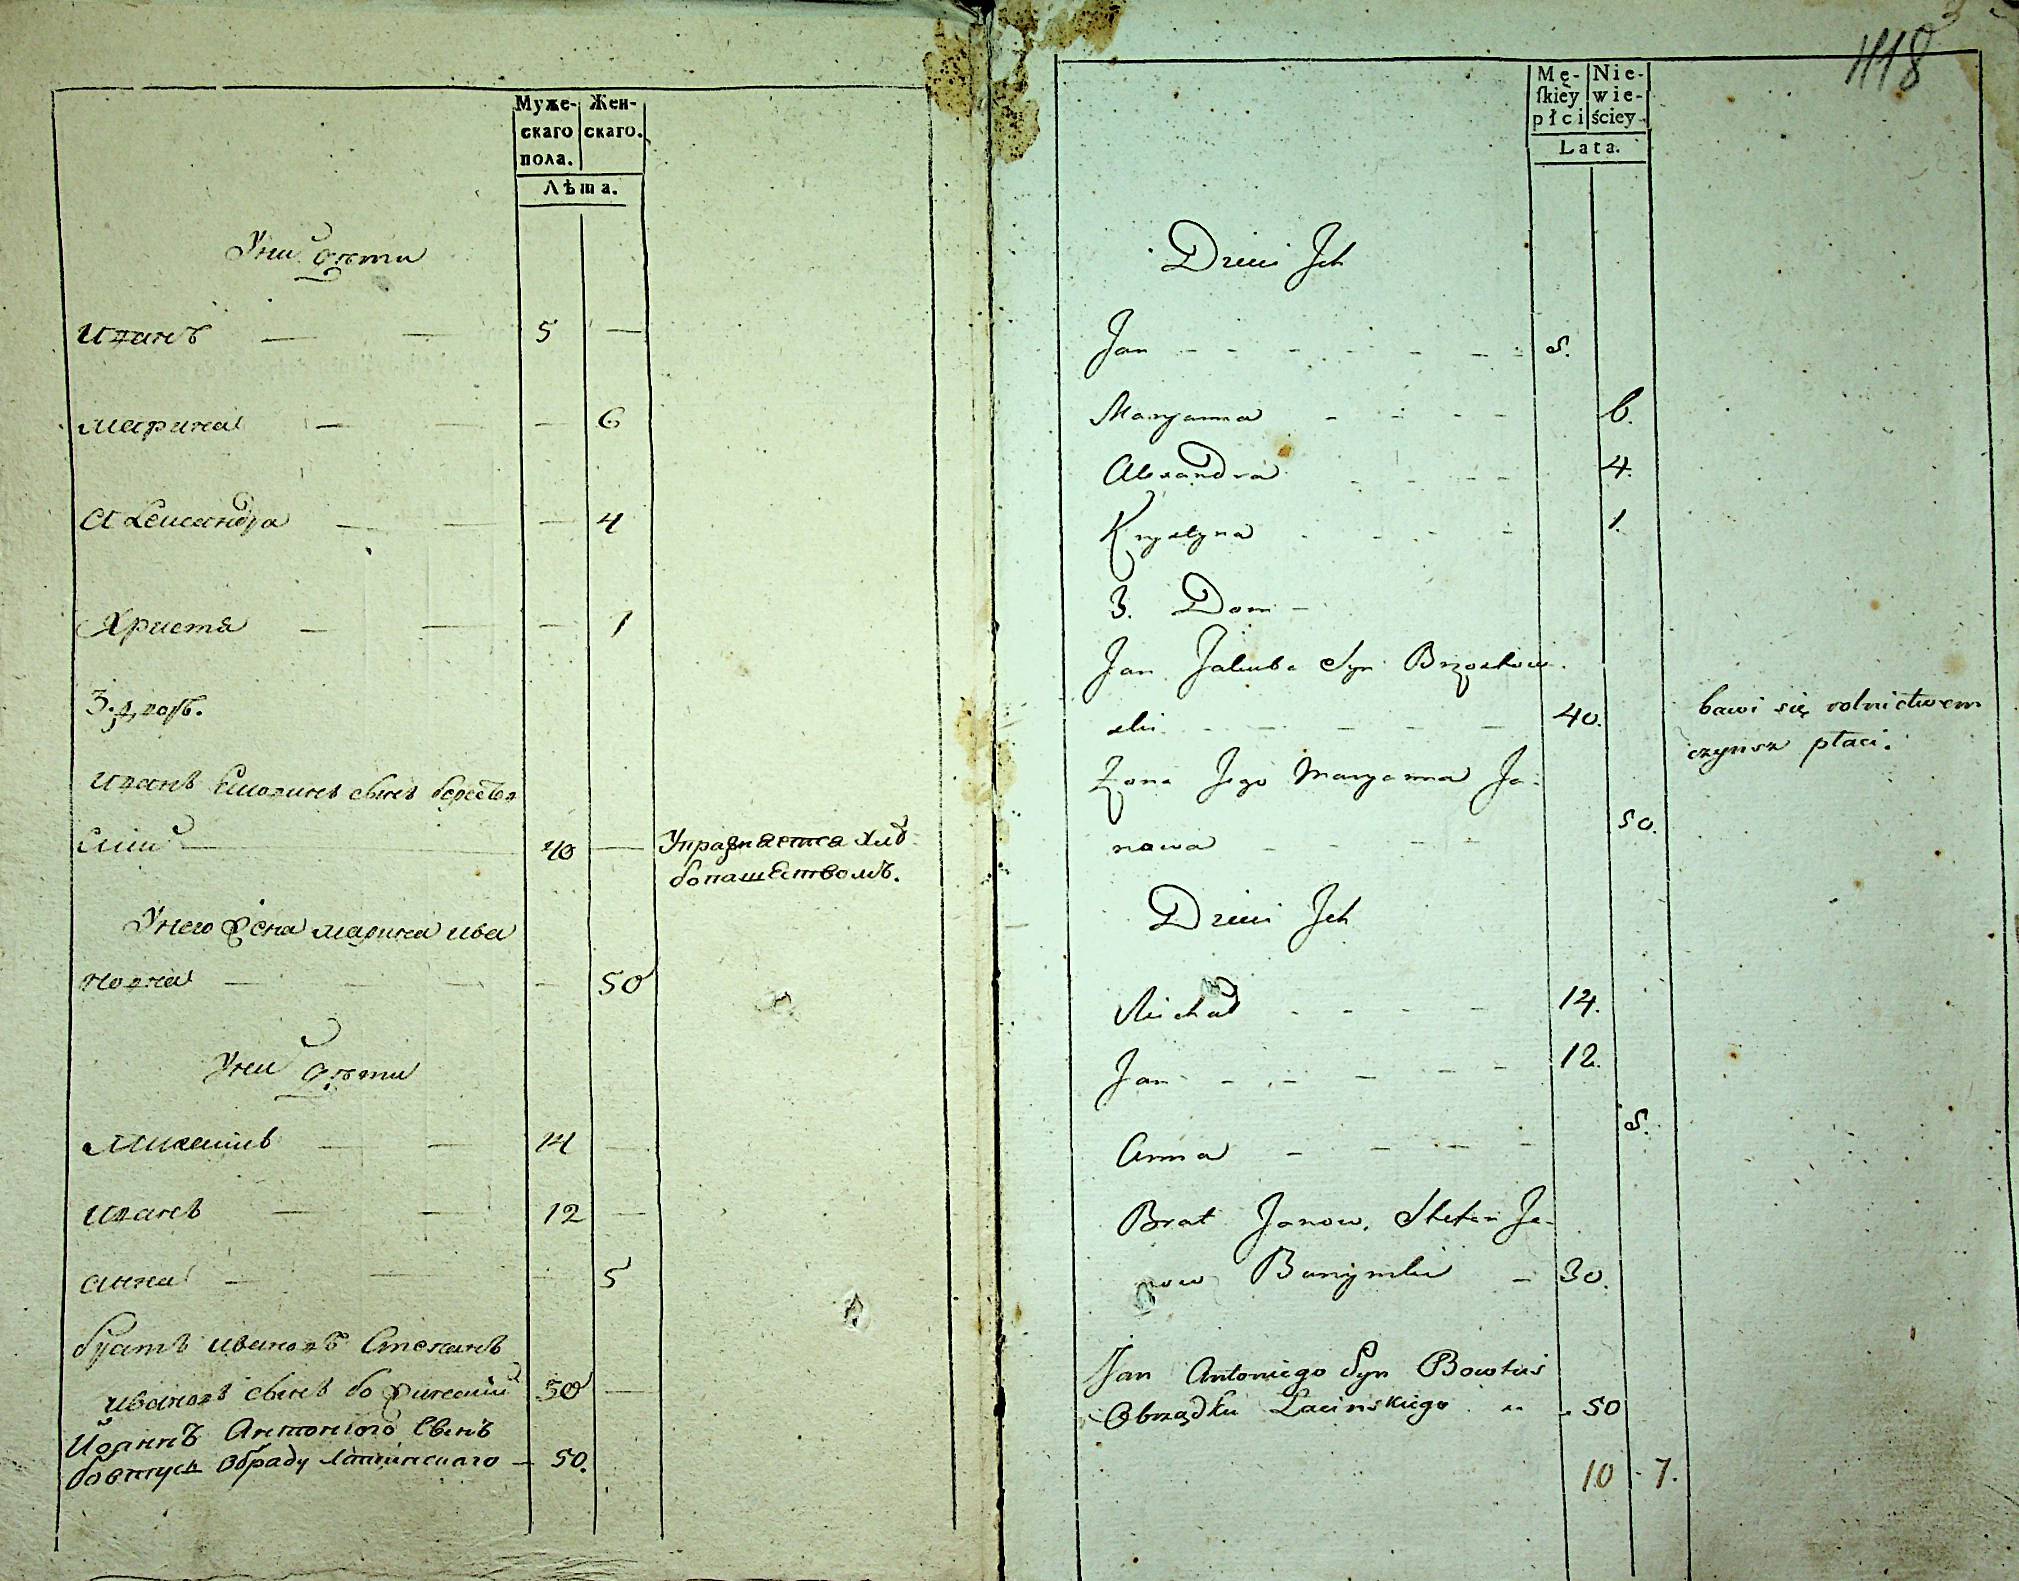 Муже-
скаго
пола.
Жен-
скаго.
Лѣта.
У ни дети
Иванъ — — 5 —
Марина — — — 6
Александра — — — 4
Христя — — — 1
3. дворъ.
Иванъ сынъ
ский — 40 — Упражняется хлѣ-
бопашествомъ.
У него жена Марина Ива
новна — — — — 50
У ни дети
Михаилъ — — 14 —
Иванъ — — 12 —
Анна — — — 5
братъ Ивановъ Степанъ
Ивановъ сынъ 30 —
Иоаннъ Антонiого Сынъ
Бовтусь Обряду Латинскаго — 50.
418
Mę-
ſkiey
płci
Nie-
wie-
ściey
Lata.
Dzieci Ich
Jan - - - - - - - 5.
Maryanna - - - - 6.
Alexandra - - - - 4.
Krystyna - - - - 1.
3. Dom -
Jan Jakuba Syn Brzostow-
ski - - - - - 40. bawi się rolnictwem
czynsz płaci.
Żona Jego Maryanna Ja-
nowa - - - - 50.
Dzieci Ich
Michał - - - - 14.
Jan - - - - - 12.
Anna - - - - 5.
Brat Janow, Stefan Ja-
now - 30.
Jan Antoniego Syn Bowtus
Obrządku Łacinskiego " - 50
10 - 7.